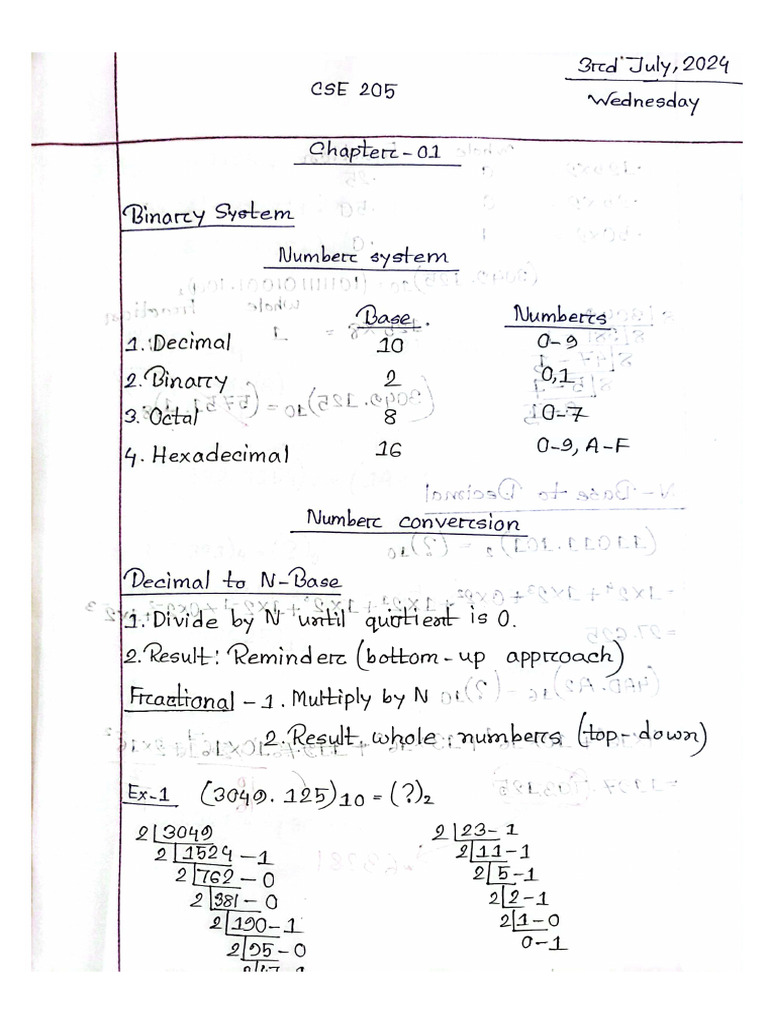 3rd July, 2024
CSE 205
Wednesday
Chapter-01
Binary System
Number system
Base Numbers
1. Decimal 10 0-9
2. Binary 2 0,1
3. Octal 8 0-7
4. Hexadecimal 16 0-9, A-F
Number conversion
Decimal to N-Base
1. Divide by N until quotient is 0.
2. Result: Reminder (bottom-up approach)
Fractional - 1. Multiply by N
2. Result. whole numbers (top-down)
Ex-1 (3049.125)10 = (?)2
2 | 3049
2 | 1524 - 1
2 | 762 - 0
2 | 381 - 0
2 | 190 - 1
2 | 95 - 0
2 | 47 - 1
2 | 23 - 1
2 | 11 - 1
2 | 5 - 1
2 | 2 - 1
2 | 1 - 0
0 - 1